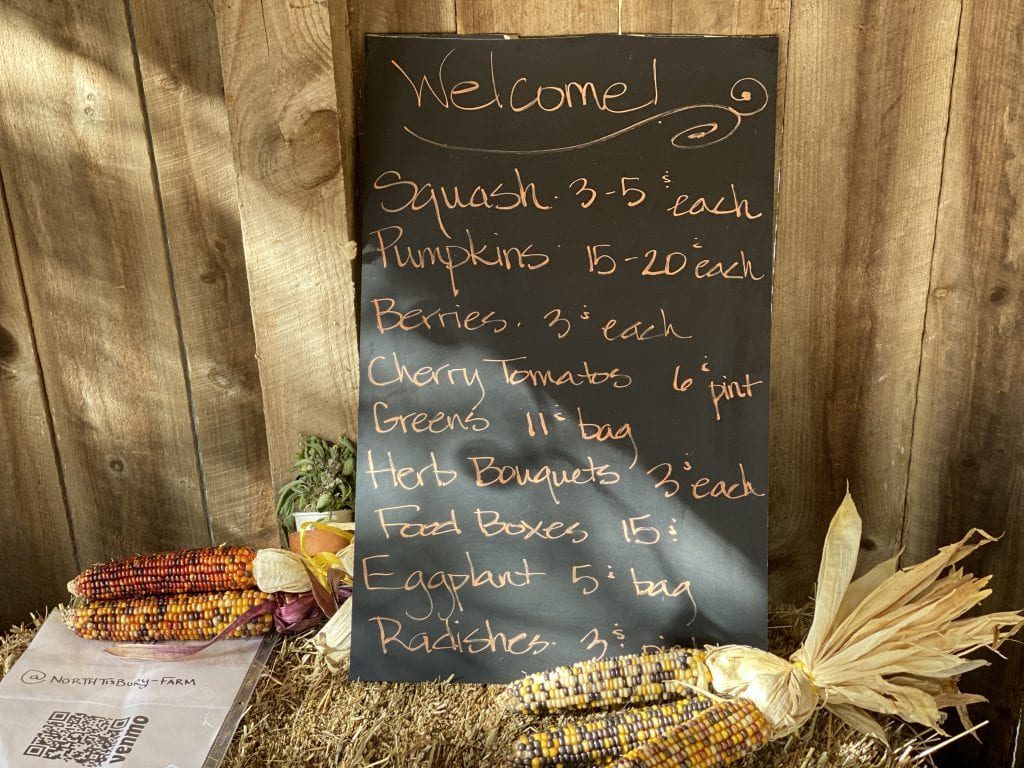 Welcome!
Squash. 3-5 $ each
Pumpkins 15-20 $ each
Berries. 3 $ each
Cherry Tomatos 6 $ pint
Greens 11 $ bag
Herb Bouquets 3 $ each
Food Boxes 15 $
Eggplant 5 $ bag
Radishes. 3 $
@NORTHTISBURY-FARM
venmo